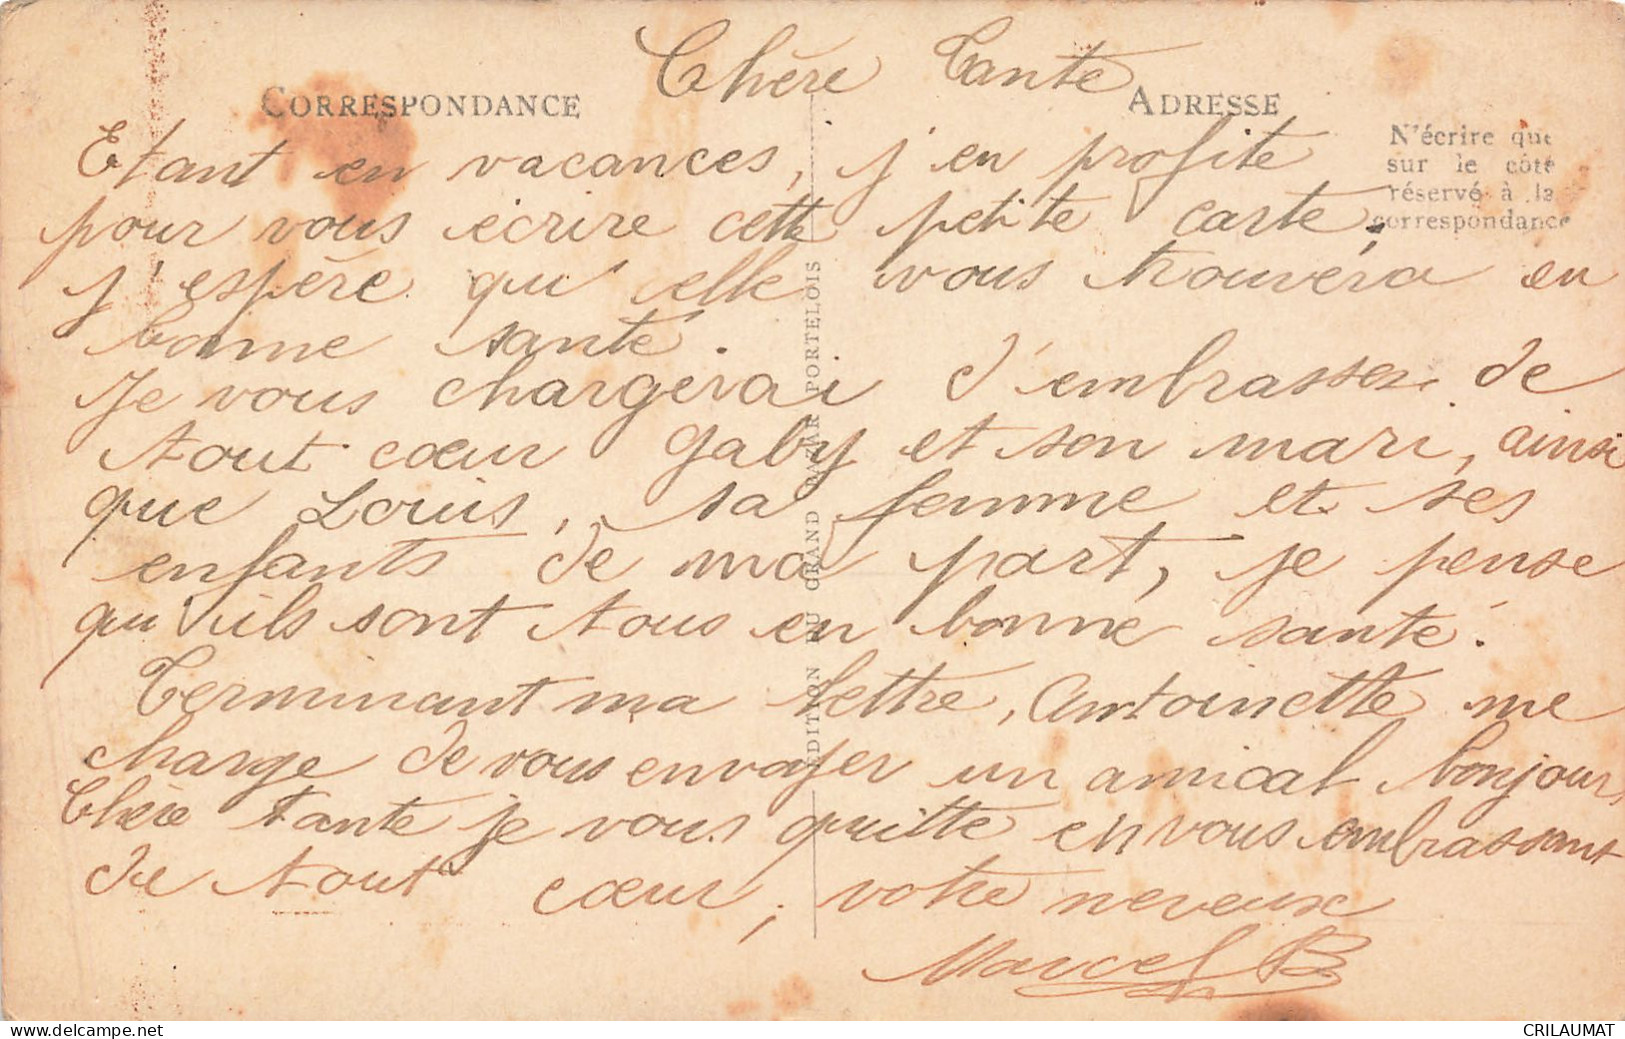 Chère Tante
CORRESPONDANCE
ADRESSE
N'écrire que
sur le côté
réservé à la
correspondance
Etant en vacances, j'en profite
pour vous écrire cette petite carte,
j'espère qu'elle vous trouvéra en
bonne santé.
Je vous chargerai d'embrasser de
tout cœur Gaby et son mari, ainsi
que Louis, sa femme et ses
enfants de ma part, je pense
qu'ils sont tous en bonne santé.
Terminant ma lettre, Antoinette me
charge de vous envoyer un amical bonjour,
Chère Tante je vous quitte en vous embrassant
de tout cœur, votre neveux
Marcel B
EDITION DU GRAND BAZAR PORTELOIS
CRILAUMAT